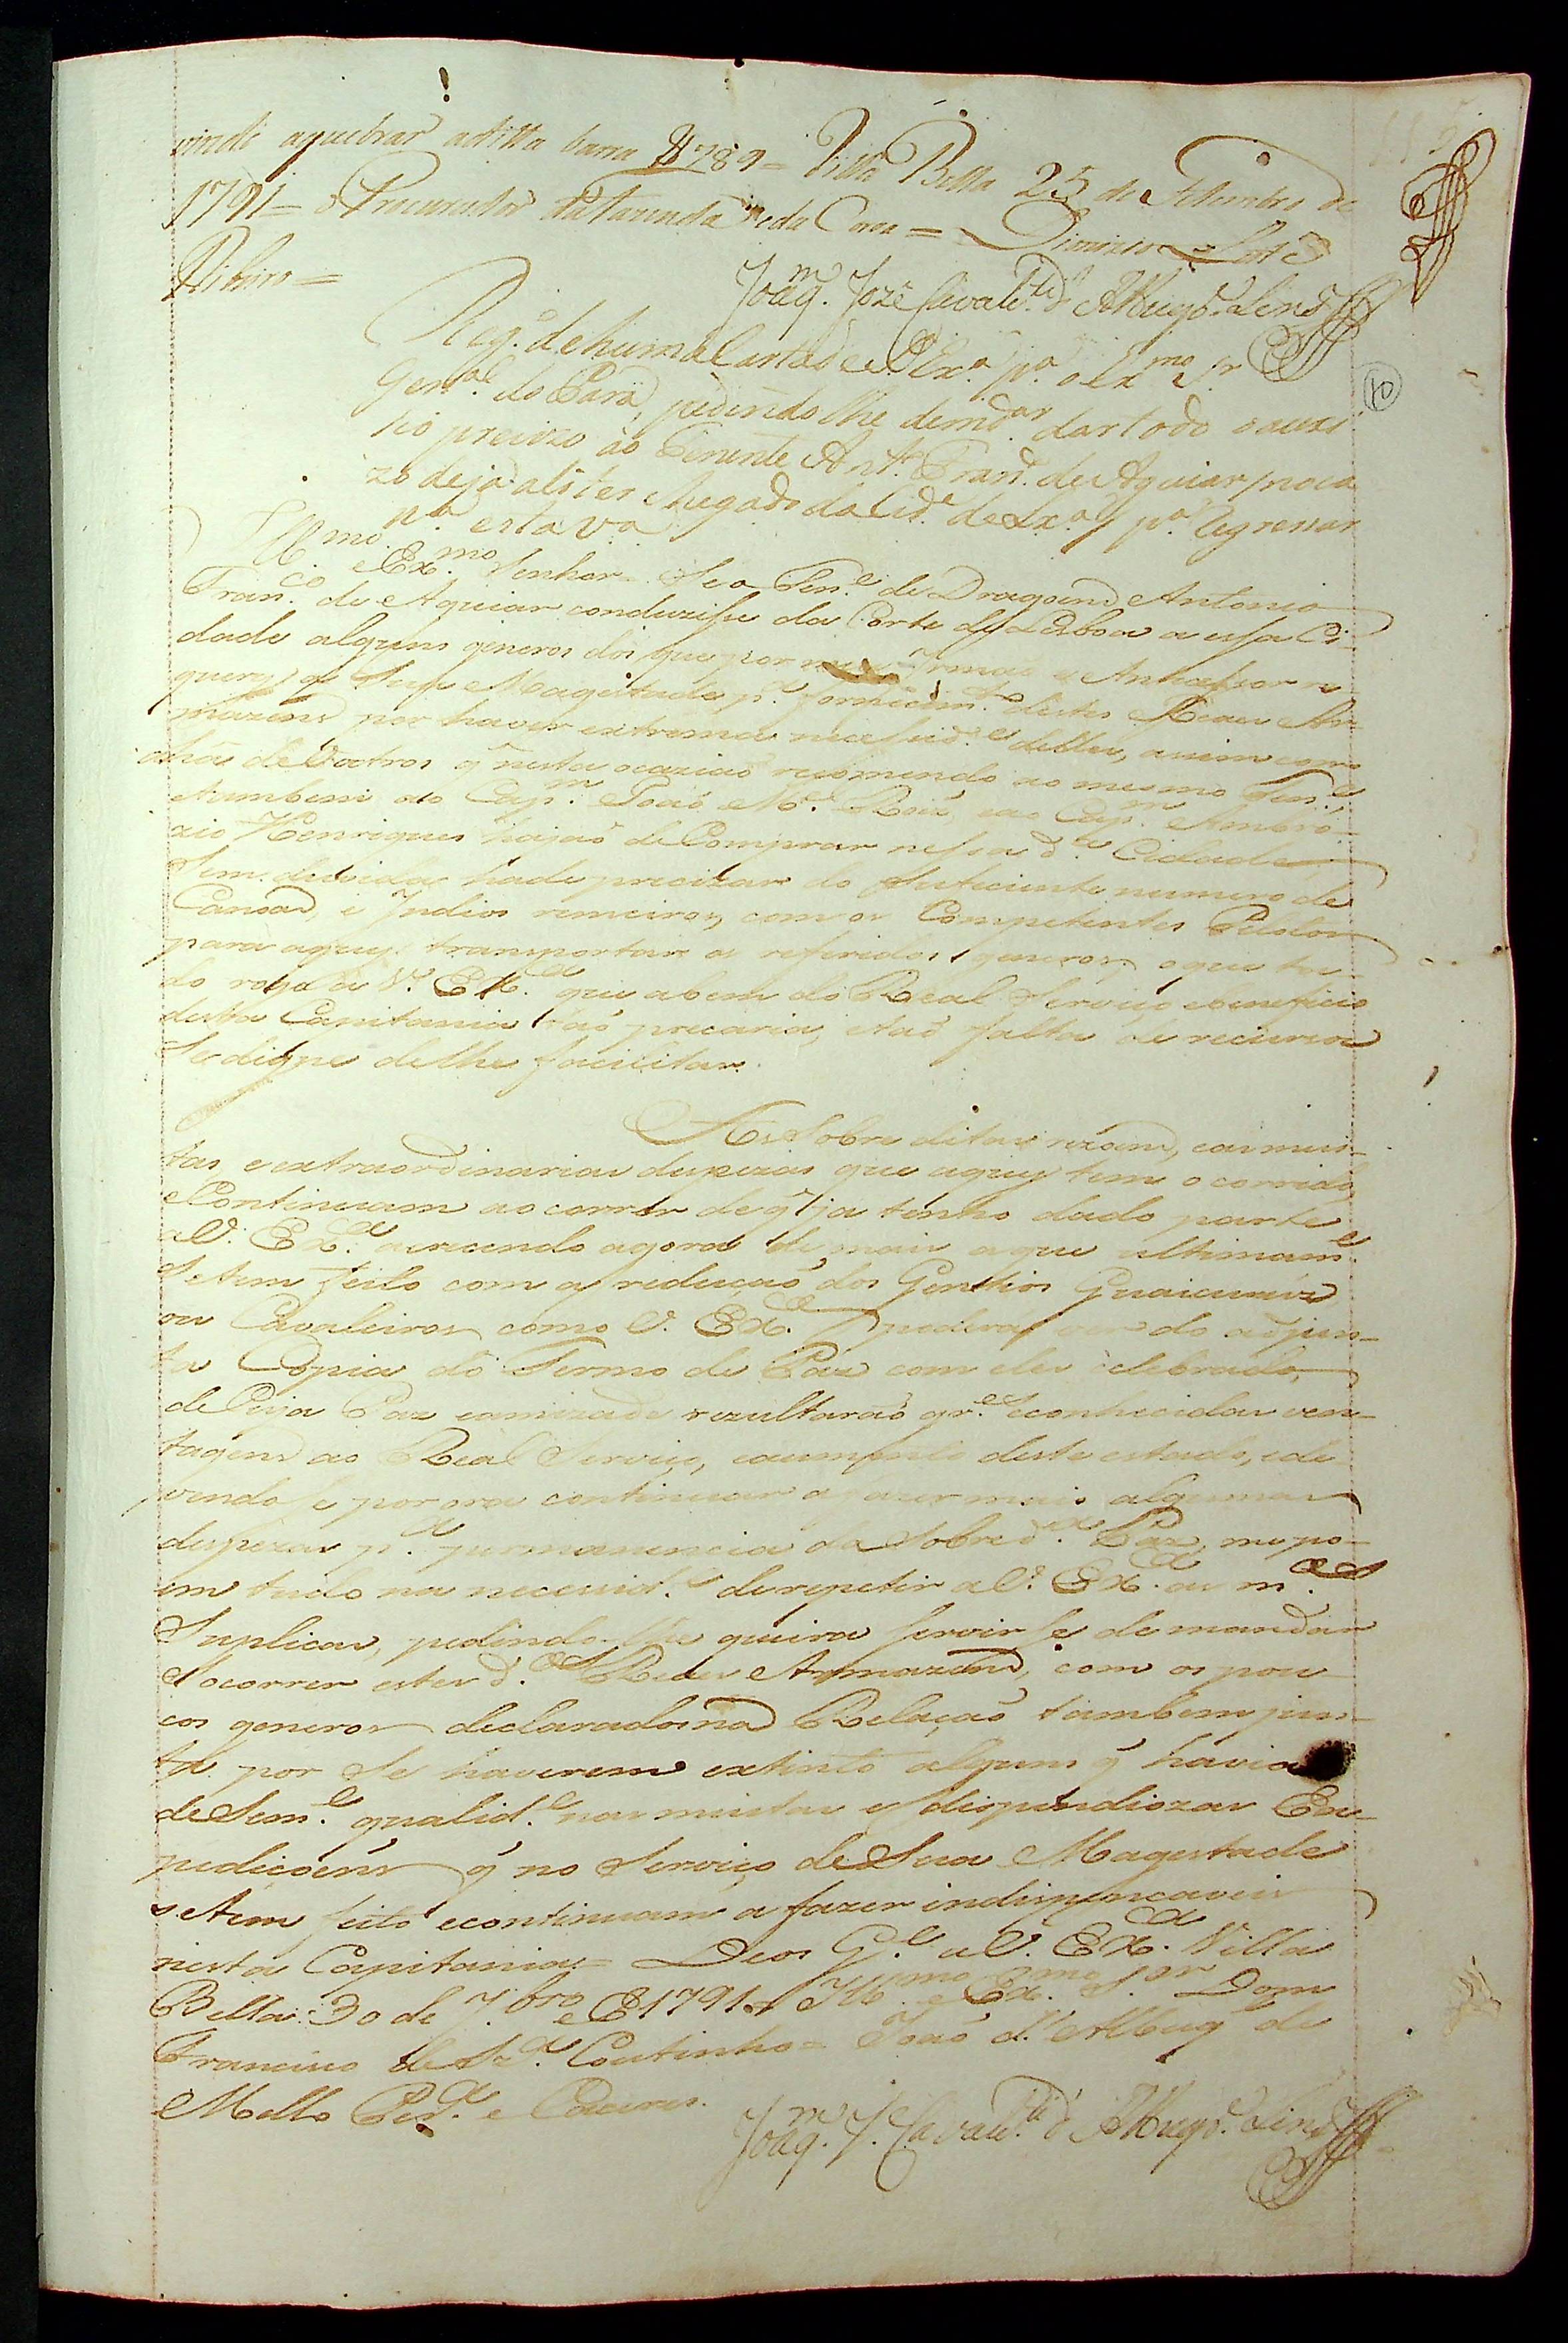 vindo aquebrar aditta barra 1789 = Villa Bella 25 de Settembro de
1791 = o Procurador da Fazenda e da Coroa = 
Ribeiro =
Joaq.m Jozé Cavalc.te d'Albuq.e Lins
Reg.o de huma Carta de S. Ex.a p.a o Ex.mo S.r
Gen.al do Pará, pedindolhe de md.ar dar todo o auxi
lio precizo ao Tenente Ant.o Fran.co de Aguiar, no ca
zo de ja ali ter chegado da Cid.e de Lx.a, p.a Regressar
p.a esta V.a
Ill.mo e Ex.mo Senhor = Se o Ten.e de Dragoens Antonio
Fran.co de Aguiar conduzisse da Corte de Lisboa a essa Ci-
dade alguns generos dos que por meu Irmaõ e Antecessor re
quereo a Sua Magestade p.a fornecim.to destes Reaes Ar-
mazens por haver extrema necessid.e delles, assim como
de outros q̃ nesta ocaziaõ recomendo ao mesmo Ten.e,
etambem ao Cap.m Joaõ M.el Roiz, eao Cap.m Ambro-
zio Henriques hajaõ de Comprar nessa d.a Cidade
Sem duvida hade precizar do Suficiente numero de
Canoas, e Indios remeiros, com os Competentes Pilotos
para aquy transportar os referidos generos, oque tu-
do rogo a V. Ex.a que abem do Real Serviço ebeneficio
desta Capitania taõ precaria, etaõ falta de recursos
Se digne delhe facilitar.
As Sobre ditas rezoens, eas mui-
tas eextraordinarias despezas que aquy tem ocorrido
eContinuam aocorrer de q̃ ja tenho dado parte
aV. Ex.a acrecendo agora de mais aque ultimam.e
Setem feito com a reduçaõ dos Gentios Guaicurús
ou Cavaleiros como V. Ex.a poderá ver do adjun-
ta Copia do Termo de Paz com eles celebrado,
de Cuja Paz eamizade rezultaraõ gr.es econhecidas ven-
tagens ao Real Serviço, eaumento deste estado, ede
vendo Se por ora continuar a fazer mais algumas
despezas p.a permanencia da Sobred.a Paz, me po-
em tudo na necessid.e de repetir a V. Ex.a as m.as
Suplicas, pedindo-lhe queira Servir Se de mandar
Socorrer estes d.os Reaes Armazens, com os pou-
cos generos declarados na Relaçaõ tambem jun-
ta por Se haverem extinto alguns q̃ havia
de Sem.e qualid.e nas muitas e dispendiozas Ex-
pediçoens q̃ no Serviço de Sua Magestade
Setem feito econtinuam a fazer indispençaveis
nesta Capitania = Deos G.e a V. Ex.a Villa
Bella 30 de 7.bro de 1791 = Ill.mo e Ex.mo S.or Dom
Francisco de Sz.a Coutinho = Joaõ d'Albuq.e de
Mello Per.a e Caceres.
Joaq.m J.e Cavalc.te d'Albuq.e Lins
10